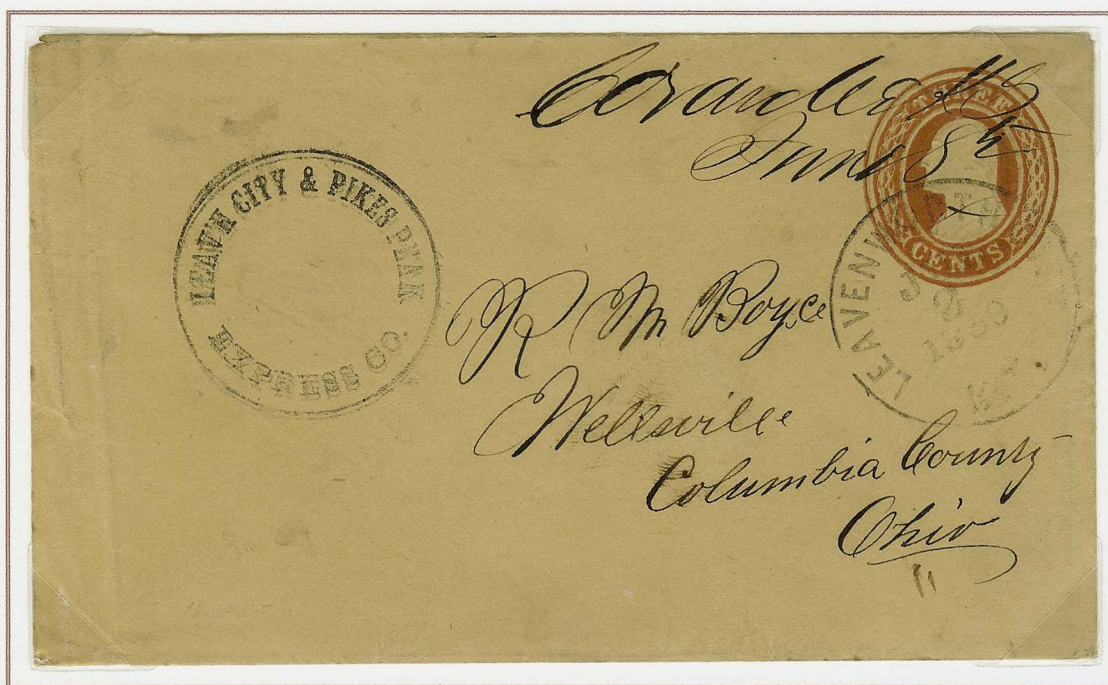 June 5th
THREE
CENTS
LEAV'H CITY & PIKES PEAK
EXPRESS CO.
LEAVENWORTH
R M Boyce
Wellsville
Columbia County
Ohio